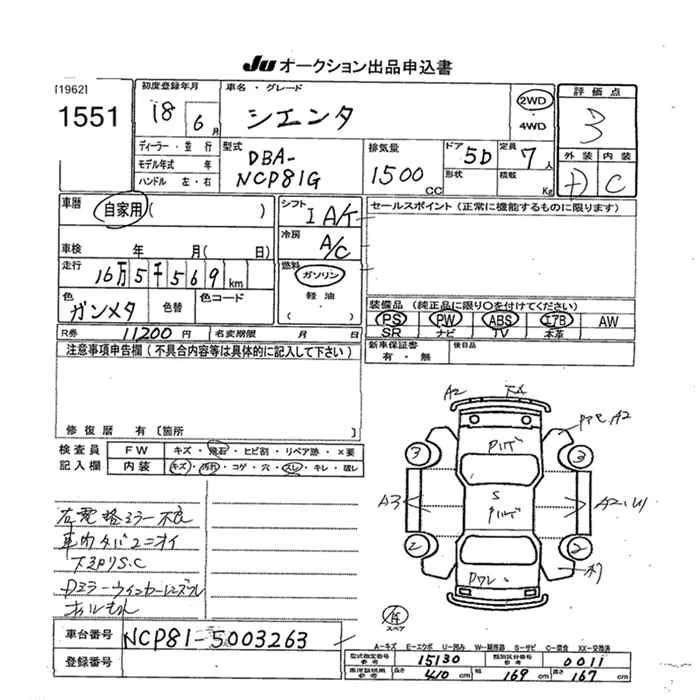 Ju オークション出品申込書
[1962]
1551
初度登録年月
18 6月
車名・グレード
シエンタ
2WD
・
4WD
評価点
3
ディーラー・並行
モデル年式 年
ハンドル 左・右
型式
DBA-
NCP81G
排気量
1500 CC
ドア 5D
形状
定員 7人
積載 Kg
外装 内装
D C
車歴 自家用( )
車検 年 月( 日)
シフト IA/T
冷房 A/C
セールスポイント(正常に機能するものに限ります)
走行 16万5千569km
燃料 ガソリン
軽油
( )
色 ガンメタ 色替 色コード
装備品(純正品に限り○を付けてください)
PS PW ABS エアB AW
SR ナビ TV 本革
R券 11200円 名変期限 月 日
新車保証書
有・無
後日品
注意事項申告欄(不具合内容等は具体的に記入して下さい)
修復歴 有[箇所 ]
検査員
記入欄
FW キズ・飛石・ヒビ割・リペア跡・×要
内装 キズ・汚れ・コゲ・穴・スレ・キレ・破レ
右電格ミラー不良
車内タバコニオイ
下廻りS.C
A2
3 3
A2
A3
S
2 2
スペア
車台番号 NCP81-5003263
登録番号
A-キズ E-エクボ U-凹み W-補修跡 S-サビ C-腐食 XX-交換済
型式指定番号 参考 15130 類別区分番号 参考 0011
長さ 410cm 幅 169cm 高さ 167cm